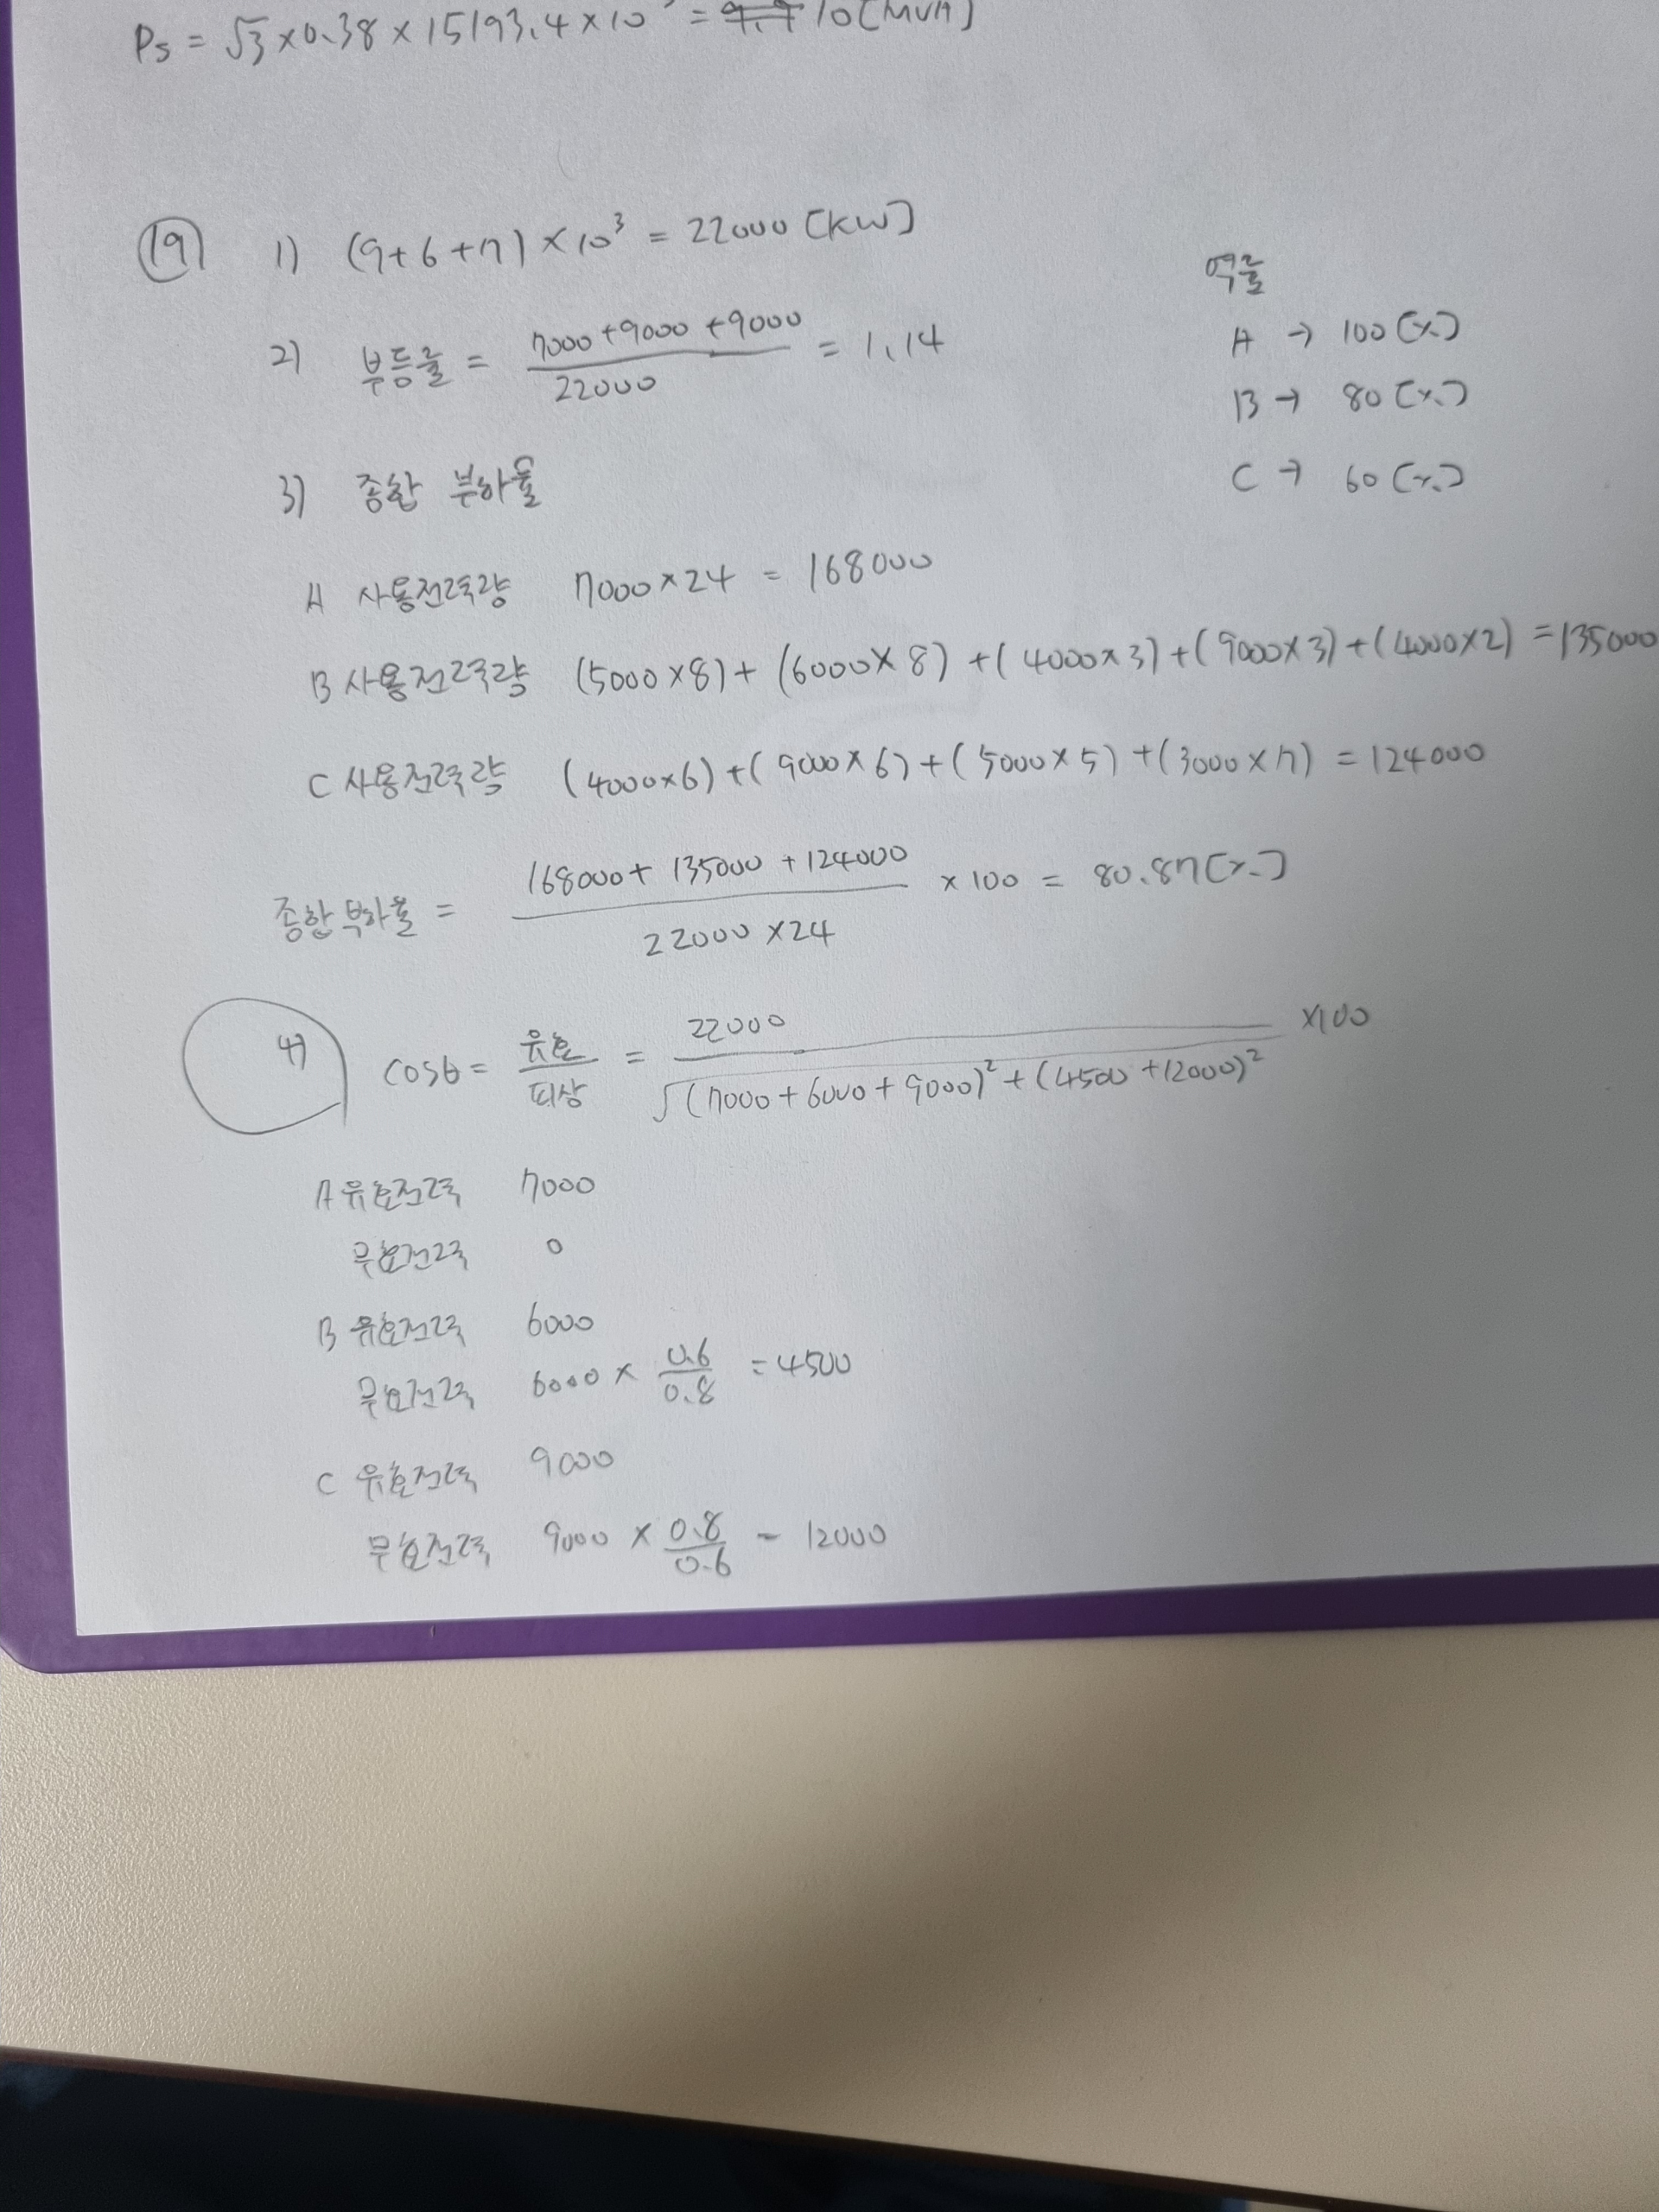 Ps = √3 × 0.38 × 15193.4 × 10 = 10 [MVA]
⑲ 1) (9+6+7) × 10³ = 22000 [kW]
2) 부등률 = (7000+9000+9000)/22000 = 1.14
역률
A → 100 [%]
B → 80 [%]
C → 60 [%]
3) 종합 부하율
A 사용전력량 7000×24 = 168000
B 사용전력량 (5000×8)+(6000×8)+(4000×3)+(9000×3)+(4000×2) = 135000
C 사용전력량 (4000×6)+(9000×6)+(5000×5)+(3000×7) = 124000
종합부하율 = (168000+135000+124000)/(22000×24) ×100 = 80.87 [%]
4) cosθ = 유효/피상 = 22000/√((7000+6000+9000)²+(4500+12000)²) ×100
A 유효전력 7000
무효전력 0
B 유효전력 6000
무효전력 6000 × 0.6/0.8 = 4500
C 유효전력 9000
무효전력 9000 × 0.8/0.6 = 12000